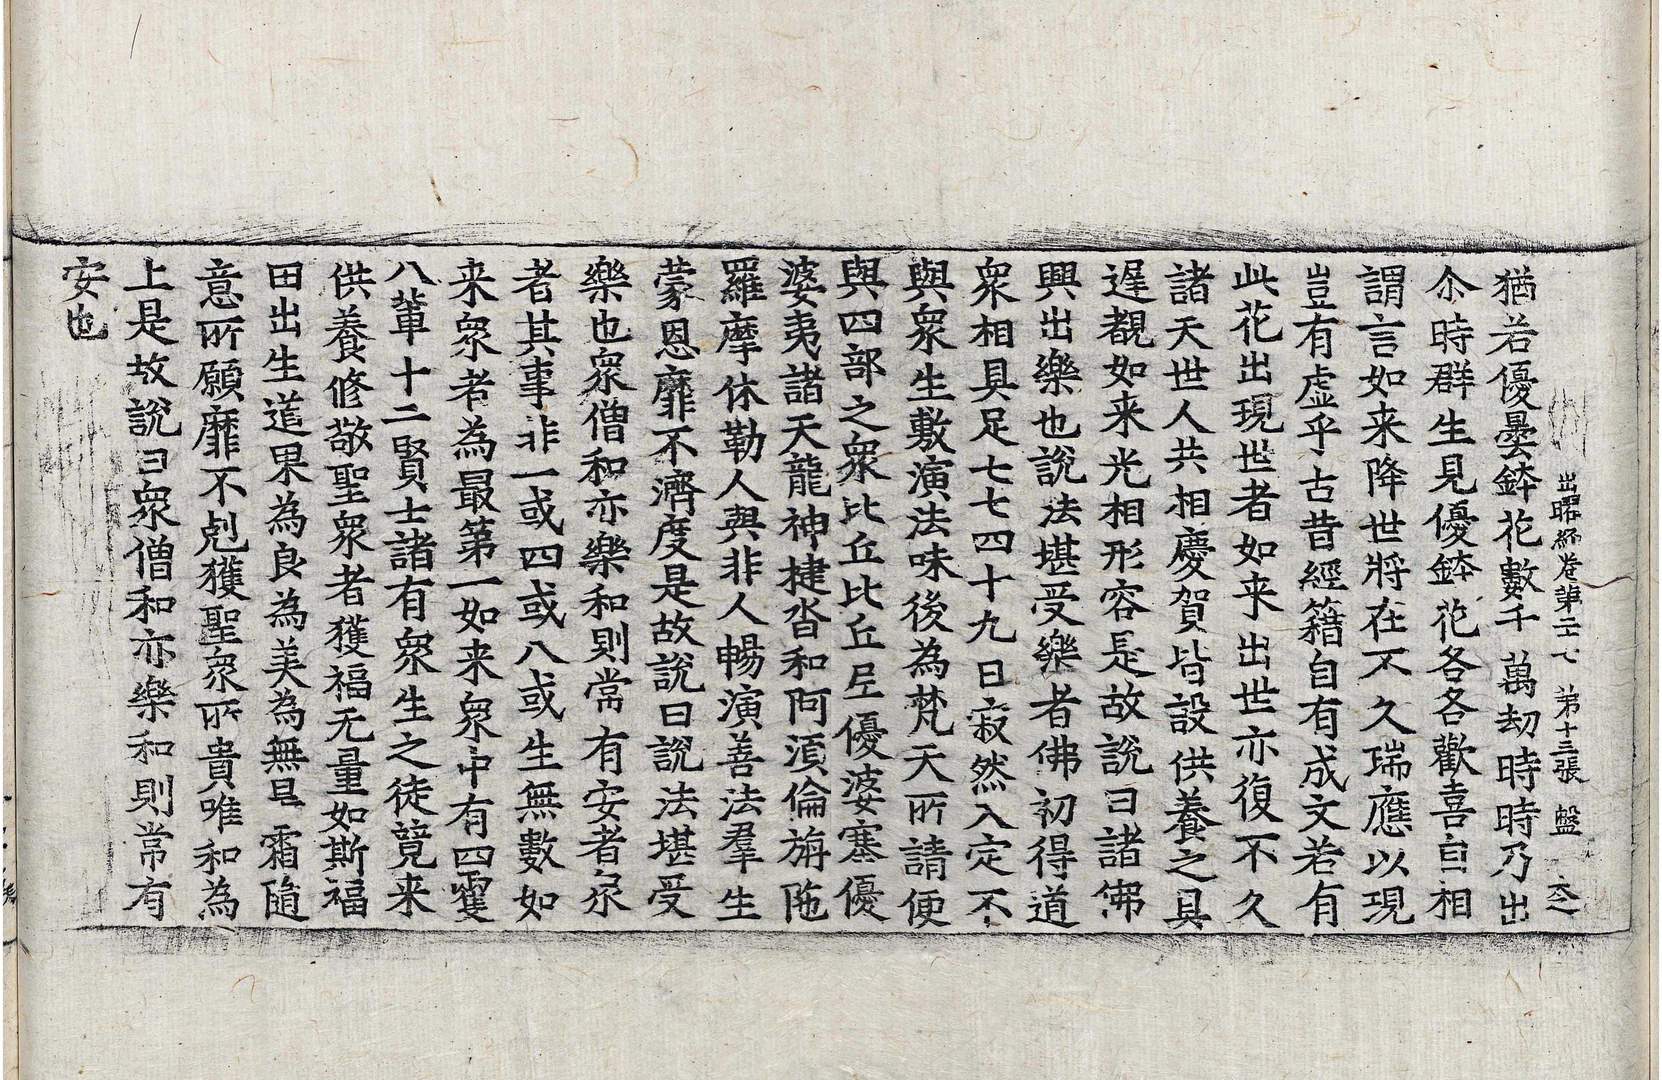 出曜経卷第二七 第十三張 盤
猶若優曇鉢花數千萬劫時時乃出
尒時群生見優鉢花各各歡喜自相
謂言如来降世將在不久瑞應以現
豈有虛乎古昔經籍自有成文若有
此花出現世者如来出世亦復不久
諸天世人共相慶賀皆設供養之具
遅覩如来光相形容是故說曰諸佛
興出樂也說法堪受樂者佛初得道
衆相具足七七四十九日寂然入定不
與衆生敷演法味後為梵天所請便
與四部之衆比丘比丘尼優婆塞優
婆夷諸天龍神揵沓和阿湏倫旃陁
羅摩休勒人與非人暢演善法羣生
蒙恩靡不濟度是故說曰說法堪受
樂也衆僧和亦樂和則常有安者衆
者其事非一或四或八或生無數如
来衆者為最第一如来衆中有四雙
八輩十二賢士諸有衆生之徒競来
供養修敬聖衆者獲福无量如斯福
田出生道果為良為美為無旱霜隨
意所願靡不剋獲聖衆所貴唯和為
上是故說曰衆僧和亦樂和則常有
安也